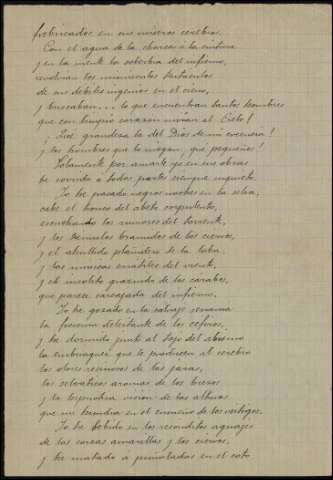 fabricados en sus mismos cerebros.
Con el agua de la charca á la cintura
y en la mente la soberbia del infierno,
revolvían los minúsculos tentáculos
de sus débiles ingenios en el cieno,
y buscaban... lo que encuentran tantos hombres
que con limpio corazón miran al Cielo!
¡Qué grandeza la del Dios de mi creencia!
¡y los hombres que lo niegan, qué pequeños!
Solamente por amarle yo en sus obras
he corrido á todas partes siempre inquieto.
Yo he pasado negras noches en la selva,
cabe el tronco del abeto corpulento,
escuchando los rumores del torrente,
y los trémulos bramidos de los ciervos,
y el aullido plañidero de la loba
y las músicas errátiles del viento,
y el insólito graznido de los cárabos,
que parece carcajada del infierno.
Yo he gozado en la salvaje serranía
la frescura deleitante de los céfiros,
y he dormido junto al tajo del abismo
la embriaguez que le producen al cerebro
los olores resinosos de las jaras,
los selváticos aromas de los brezos
y la hipnótica visión de las alturas
que me hundía en el ensueño de los vértigos.
Yo he bebido en los recónditos aguajes
de las corzas amarillas y los ciervos,
y he matado á puñaladas en el coto